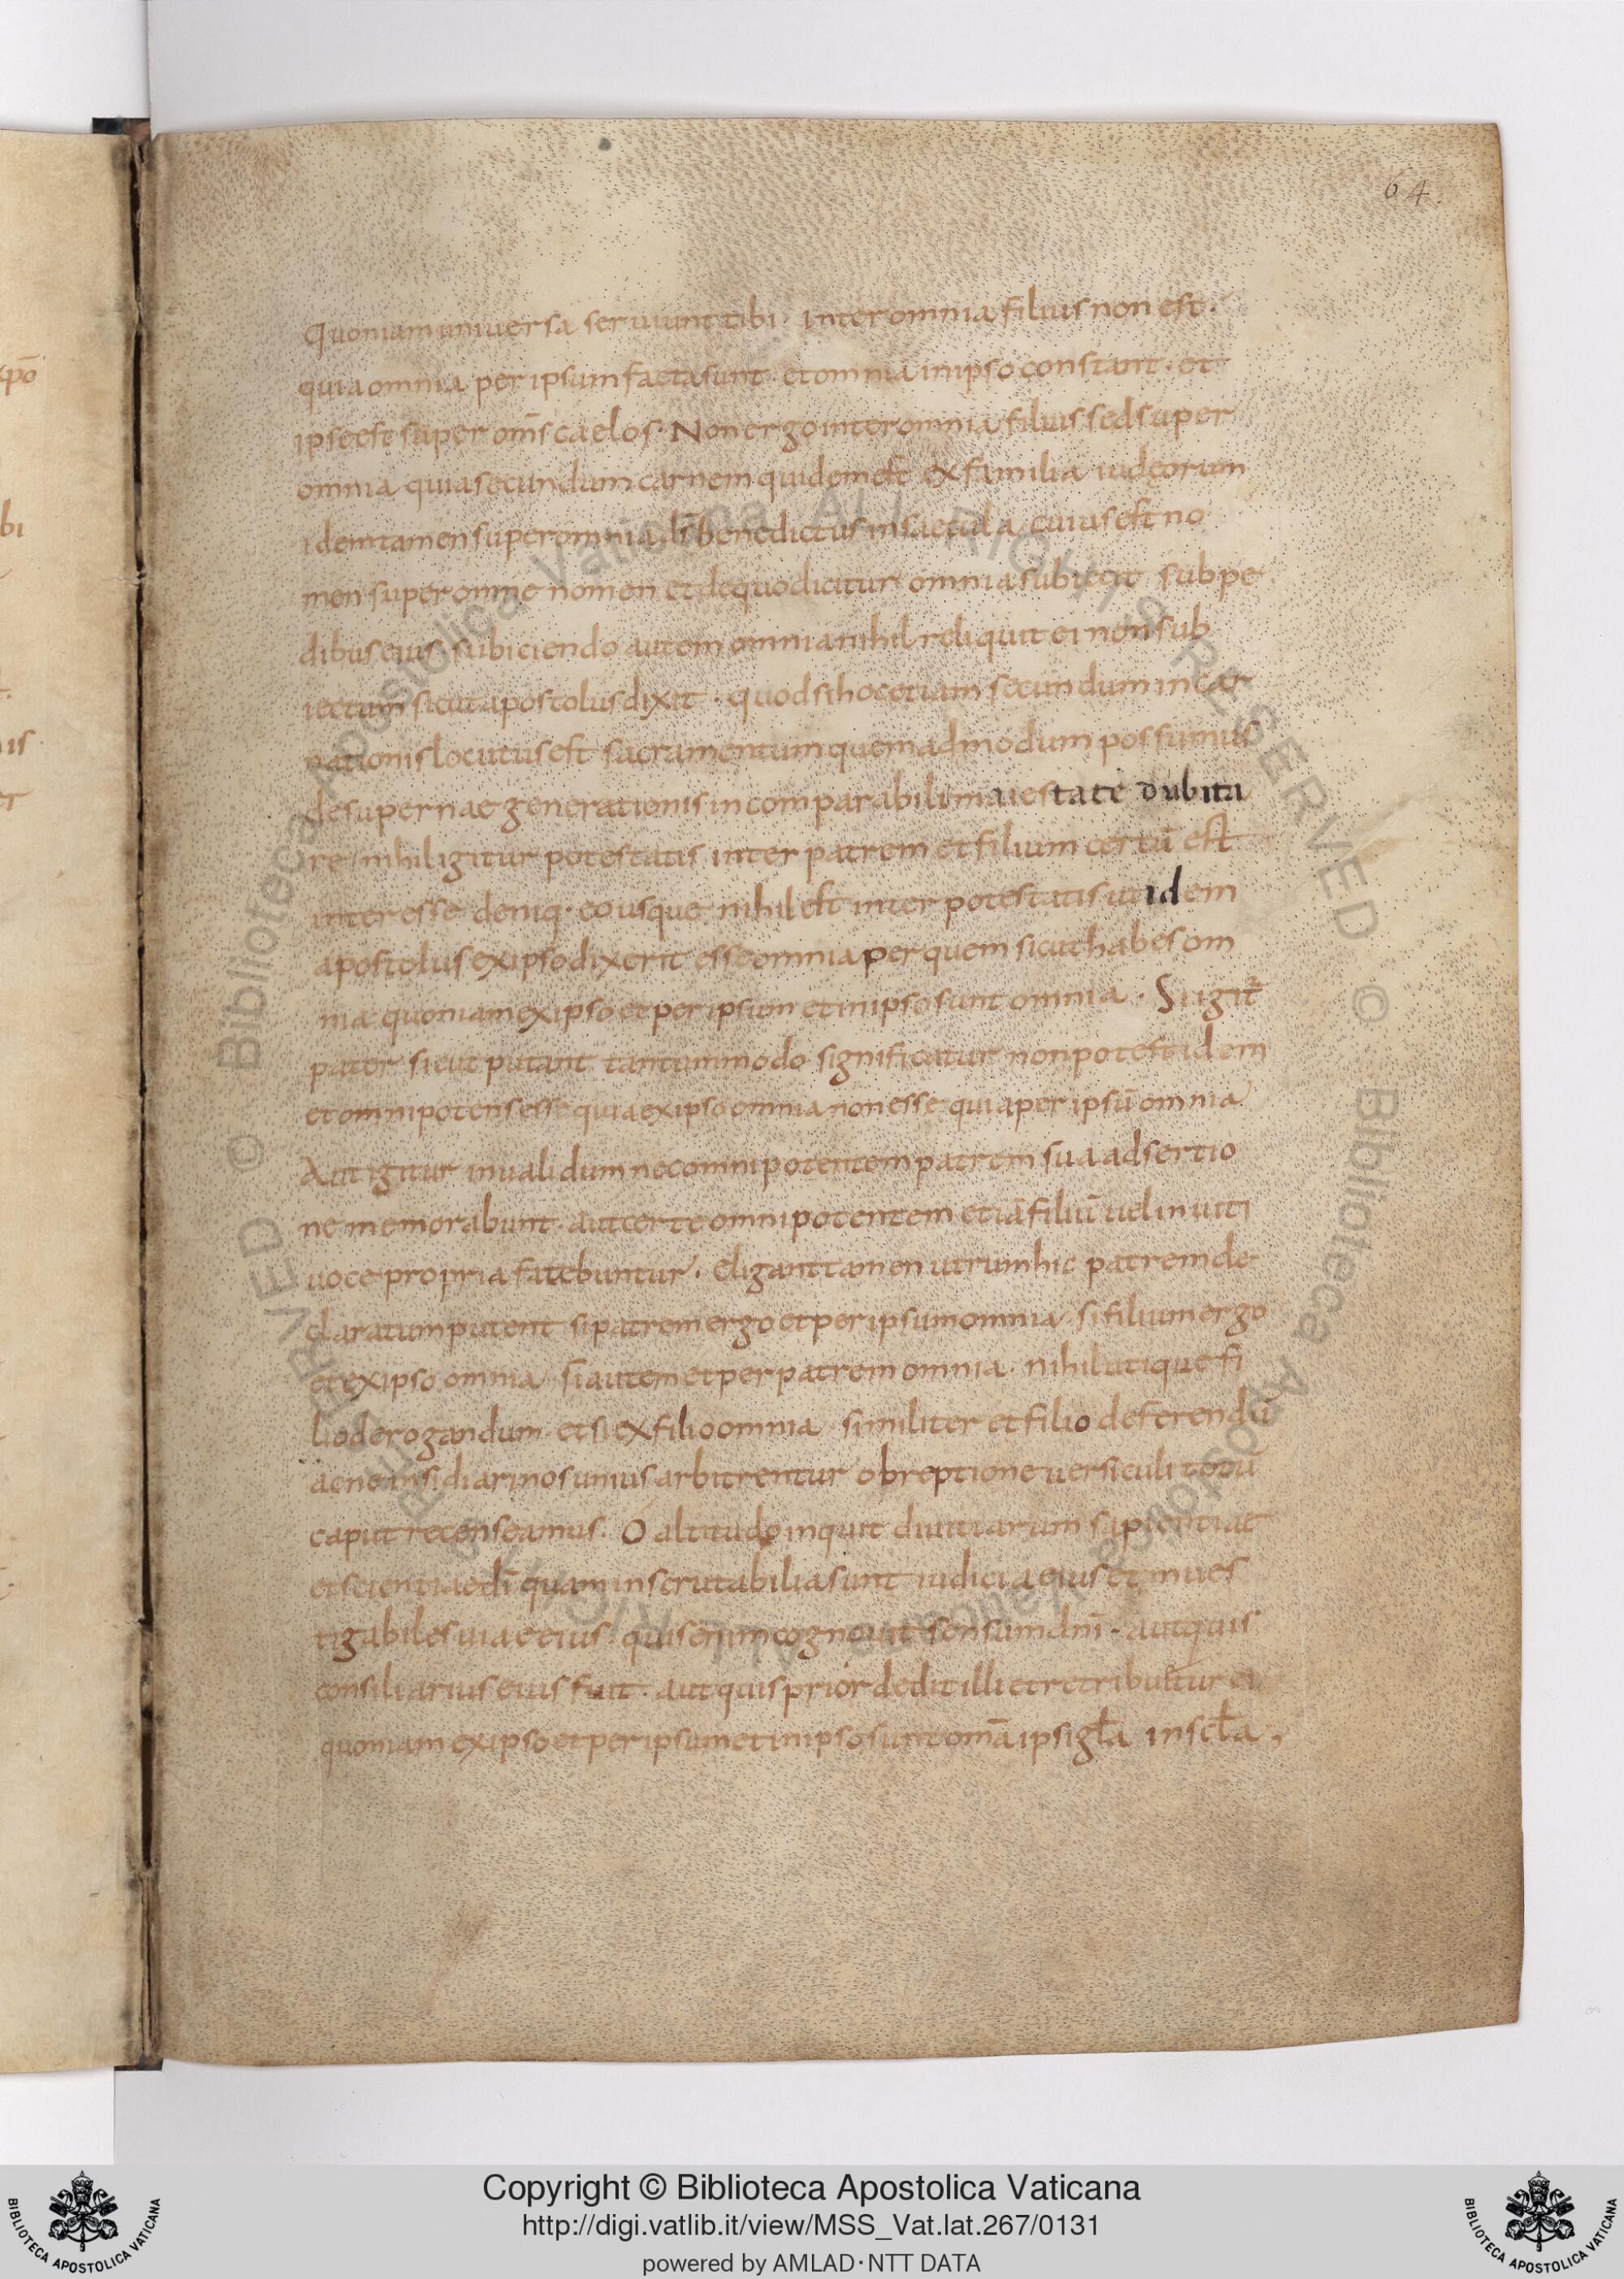 64
Quoniam universa serviunt tibi · inter omnia filius non est ·
quia omnia per ipsum facta sunt · et omnia in ipso constant · et
ipse est super om̄s caelos · Non ergo inter omnia filius sed super
omnia quia secundum carnem quidem est ex familia iudęorum
idem tamen super omnia d̄s benedictus in saecula cuius est no
men super omne nomen et de quo dicitur omnia subiecit sub pe
dibus eius · subiciendo autem omnia nihil reliquit ei non sub
iectum sicut apostolus dixit · quod si hoc etiam secundum incar
nationis locutus est sacramentum quemadmodum possumus
de supernae generationis incomparabili maiestate dubita
re · nihil igitur potestatis inter patrem et filium certū est
interesse deniq · eo usque nihil est inter potestatis ut idem
apostolus ex ipso dixerit esse omnia per quem sicut habes om
nia quoniam ex ipso et per ipsum et in ipso sunt omnia · Si igit̄
pater sicut putant tantummodo significatur non potest idem
et omnipotens esse quia ex ipso omnia non esse quia per ipsū omnia
Aut igitur invalidum nec omnipotentem patrem sua adsertio
ne memorabunt · aut certe omnipotentem etiā filiū vel inviti
voce propria fatebuntur · eligant tamen utrum hic patrem de
claratum putent si patrem ergo et per ipsum omnia · si filium ergo
et ex ipso omnia · si autem et per patrem omnia · nihil utique fi
lio derogandum · et si ex filio omnia · similiter et filio deferendū
ac ne insidiari nos unius arbitrentur obreptione versiculi totū
caput recenseamus · O altitudo inquit divitiarum sapientiae
et scientiae d̄i quam inscrutabilia sunt iudicia eius et inves
tigabiles viae eius · quis enim cognovit sensum dn̄i · aut quis
consiliarius eius fuit · aut quis prior dedit illi et retribuetur ei
quoniam ex ipso et per ipsum et in ipso sunt omā ipsi gl̄a in scl̄a ,
Copyright © Biblioteca Apostolica Vaticana
http://digi.vatlib.it/view/MSS_Vat.lat.267/0131
powered by AMLAD · NTT DATA
BIBLIOTECA APOSTOLICA VATICANA
BIBLIOTECA APOSTOLICA VATICANA